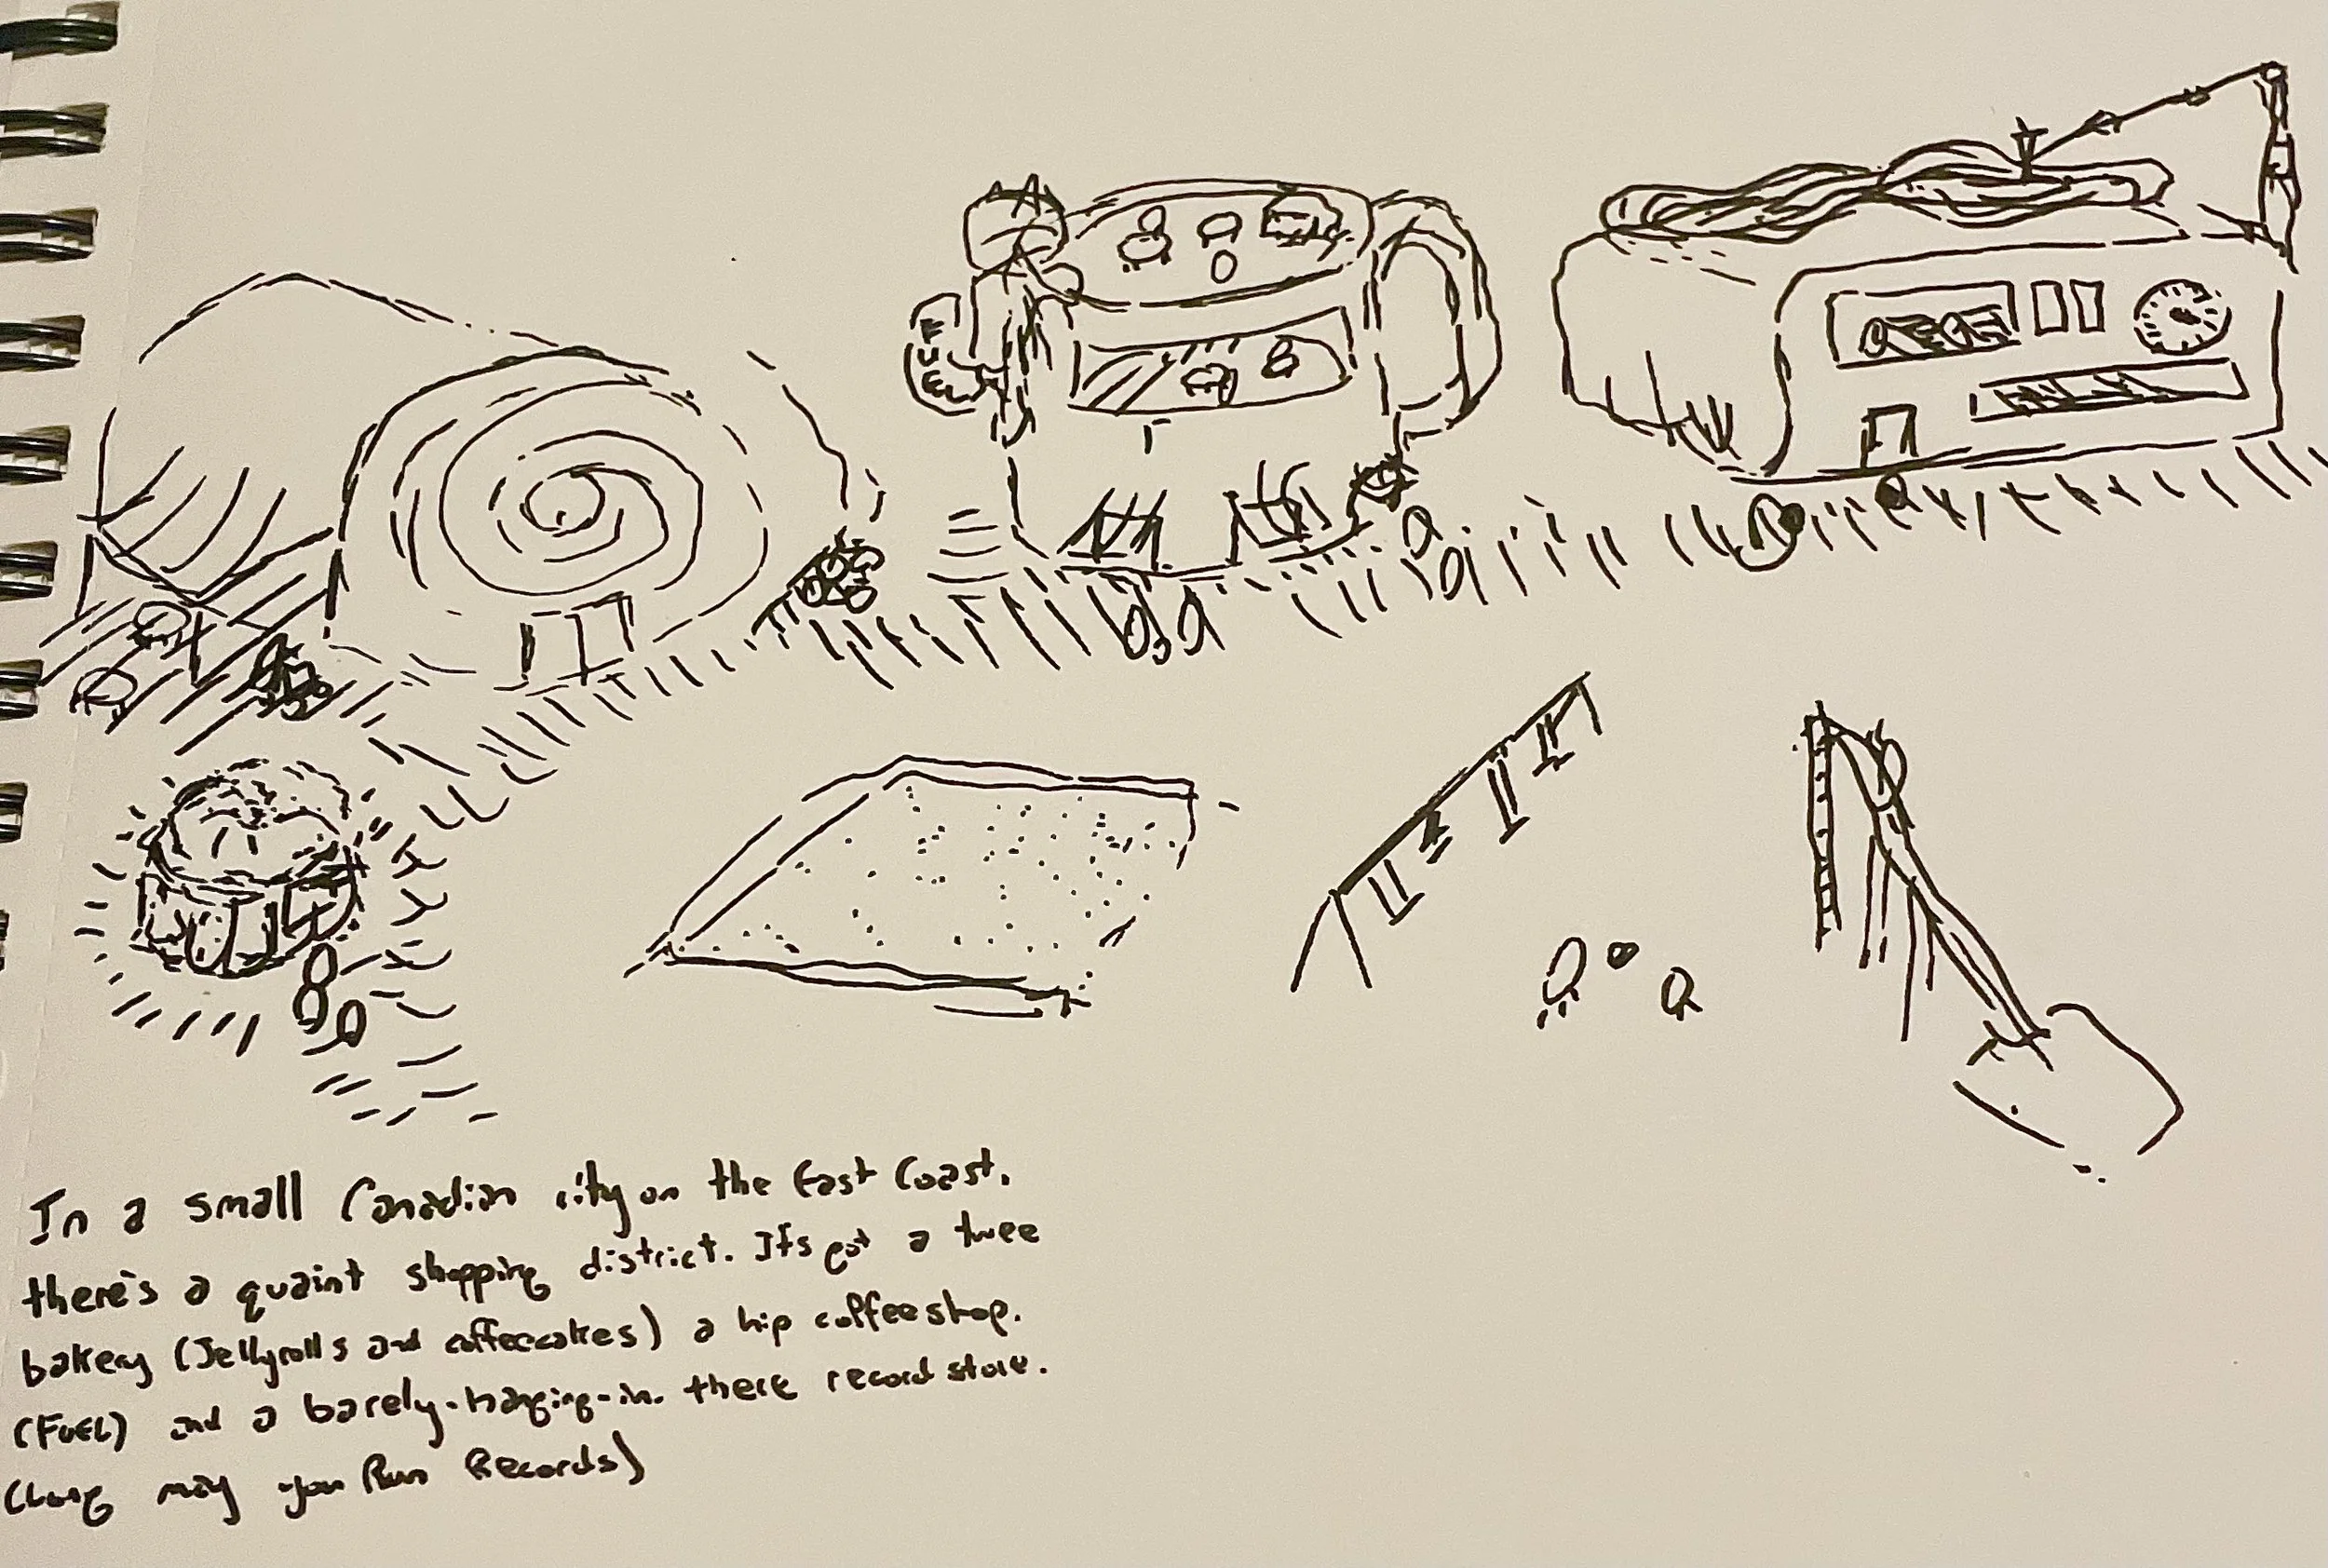 FUEL
In a small Canadian city on the East Coast,
there's a quaint shopping district. It's got a twee
bakery (Jellyrolls and coffeecakes) a hip coffeeshop.
(FUEL) and a barely-hanging-in-there record store.
(Long may you Run Records)